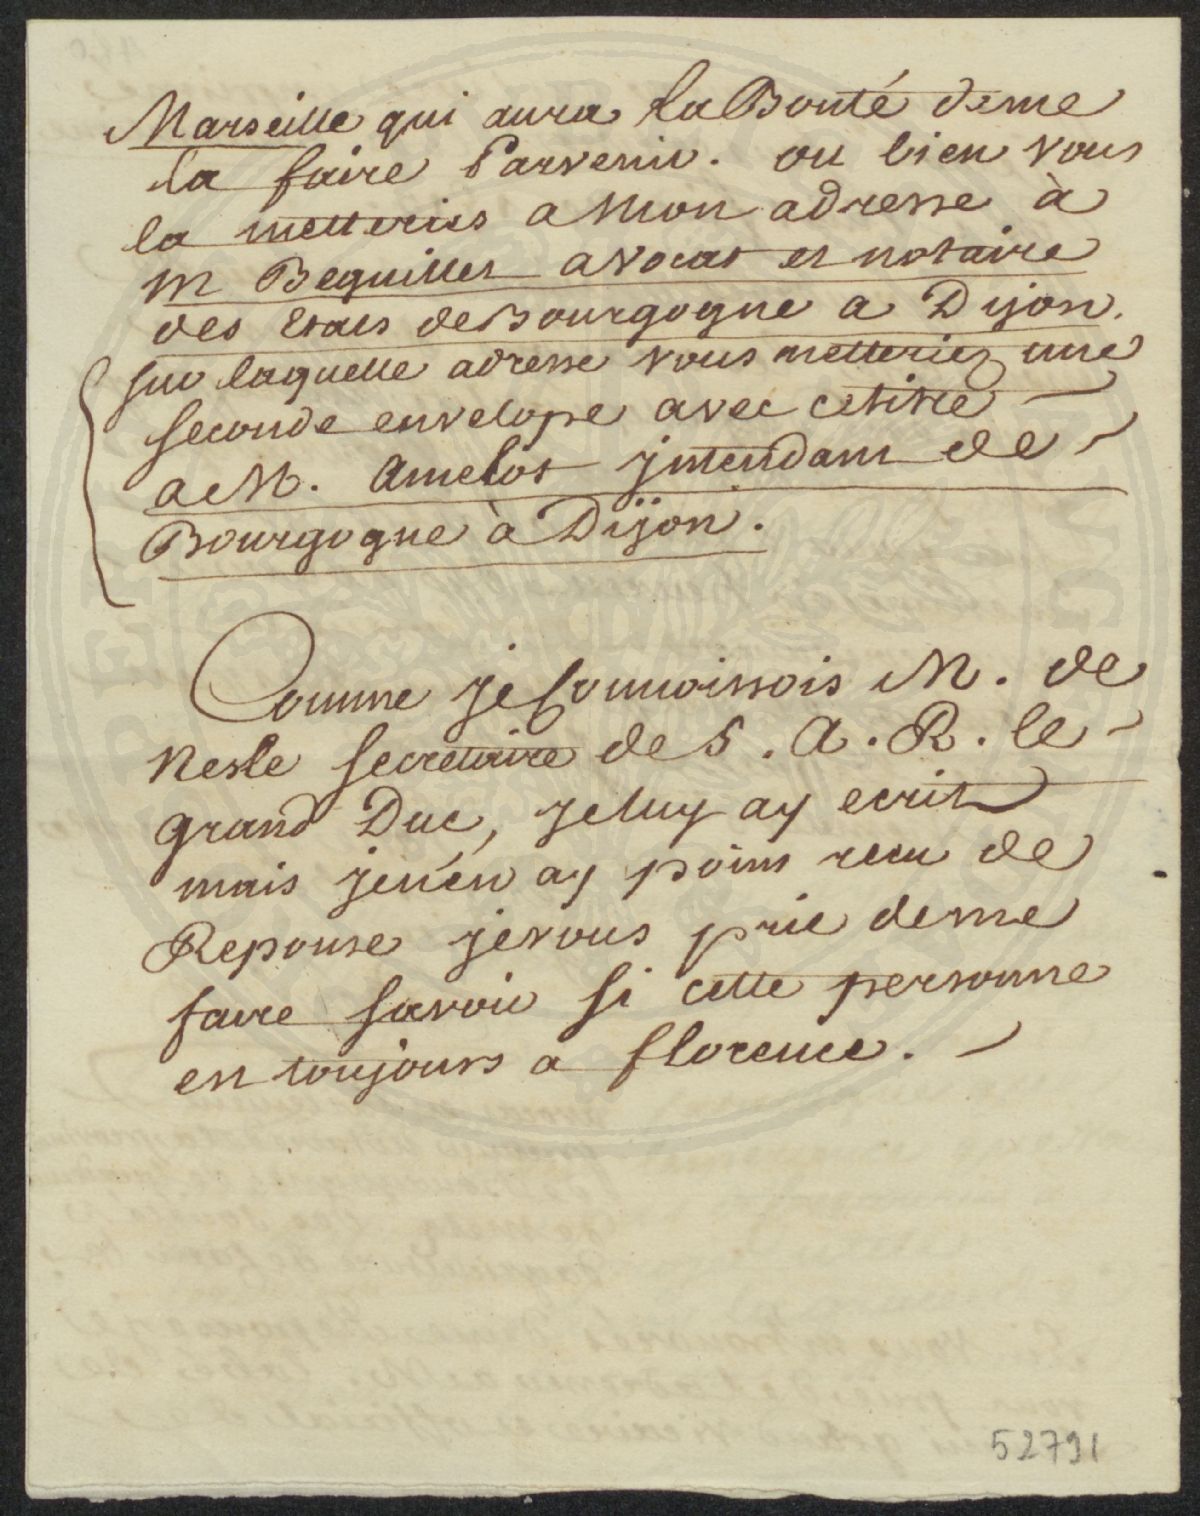 Marseille qui aura la Bonté de me
la faire Parvenir. ou bien vous
la metteries a Mon adresse à
M Beguillet avocat et notaire
des Etats de Bourgogne a Dijon.
sur laquelle adresse vous metteriez une
seconde envelope avec cetitre
a M. Amelot jntendant de
Bourgogne à Dijon.
Comme je Connoissois M. de
Nesle secretaire de S. A. R. le
grand Duc, je luy ay ecrit
mais je n'en ay point recu de
Reponse je vous prie de me
faire savoir si cette personne
est toujours a florence.
52791